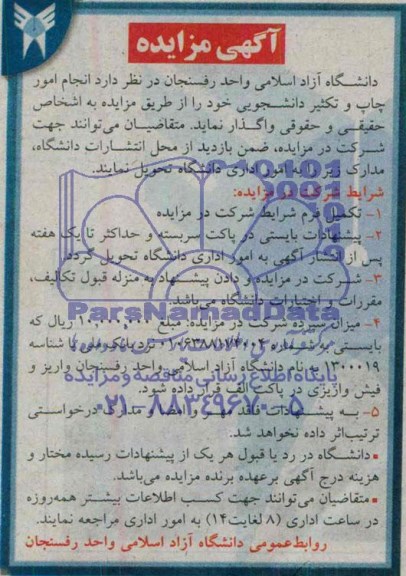 آگهی مزایده
دانشگاه آزاد اسلامی واحد رفسنجان در نظر دارد انجام امور
چاپ و تکثیر دانشجویی خود را از طریق مزایده به اشخاص
حقیقی و حقوقی واگذار نماید. متقاضیان می‌توانند جهت
شرکت در مزایده، ضمن بازدید از محل انتشارات دانشگاه،
مدارک زیر را به امور اداری دانشگاه تحویل نمایند.
شرایط شرکت در مزایده:
۱- تکمیل فرم شرایط شرکت در مزایده
۲- پیشنهادات بایستی در پاکت سربسته و حداکثر تا یک هفته
پس از انتشار آگهی به امور اداری دانشگاه تحویل گردد.
۳- شرکت در مزایده و دادن پیشنهاد به منزله قبول تکالیف،
مقررات و اختیارات دانشگاه می‌باشد.
ParsNamadData
۴- میزان سپرده شرکت در مزایده: مبلغ ۱۰,۰۰۰,۰۰۰ ریال که
بایستی به شماره نزد بانک ملی با شناسه
۱۳۰۰۰۱۹ به نام دانشگاه آزاد اسلامی واحد رفسنجان واریز و
پایگاه اطلاع رسانی مناقصه و مزایده
فیش واریزی در پاکت الف قرار داده شود.
۰۲۱-۸۸۳۴۹۶۷۰-۵
۵- به پیشنهادات فاقد مهر و امضا و مدارک درخواستی
ترتیب‌اثر داده نخواهد شد.
▪ دانشگاه در رد یا قبول هر یک از پیشنهادات رسیده مختار و
هزینه درج آگهی برعهده برنده مزایده می‌باشد.
▪ متقاضیان می‌توانند جهت کسب اطلاعات بیشتر همه‌روزه
در ساعت اداری (۸ لغایت۱۴) به امور اداری مراجعه نمایند.
روابط‌عمومی دانشگاه آزاد اسلامی واحد رفسنجان